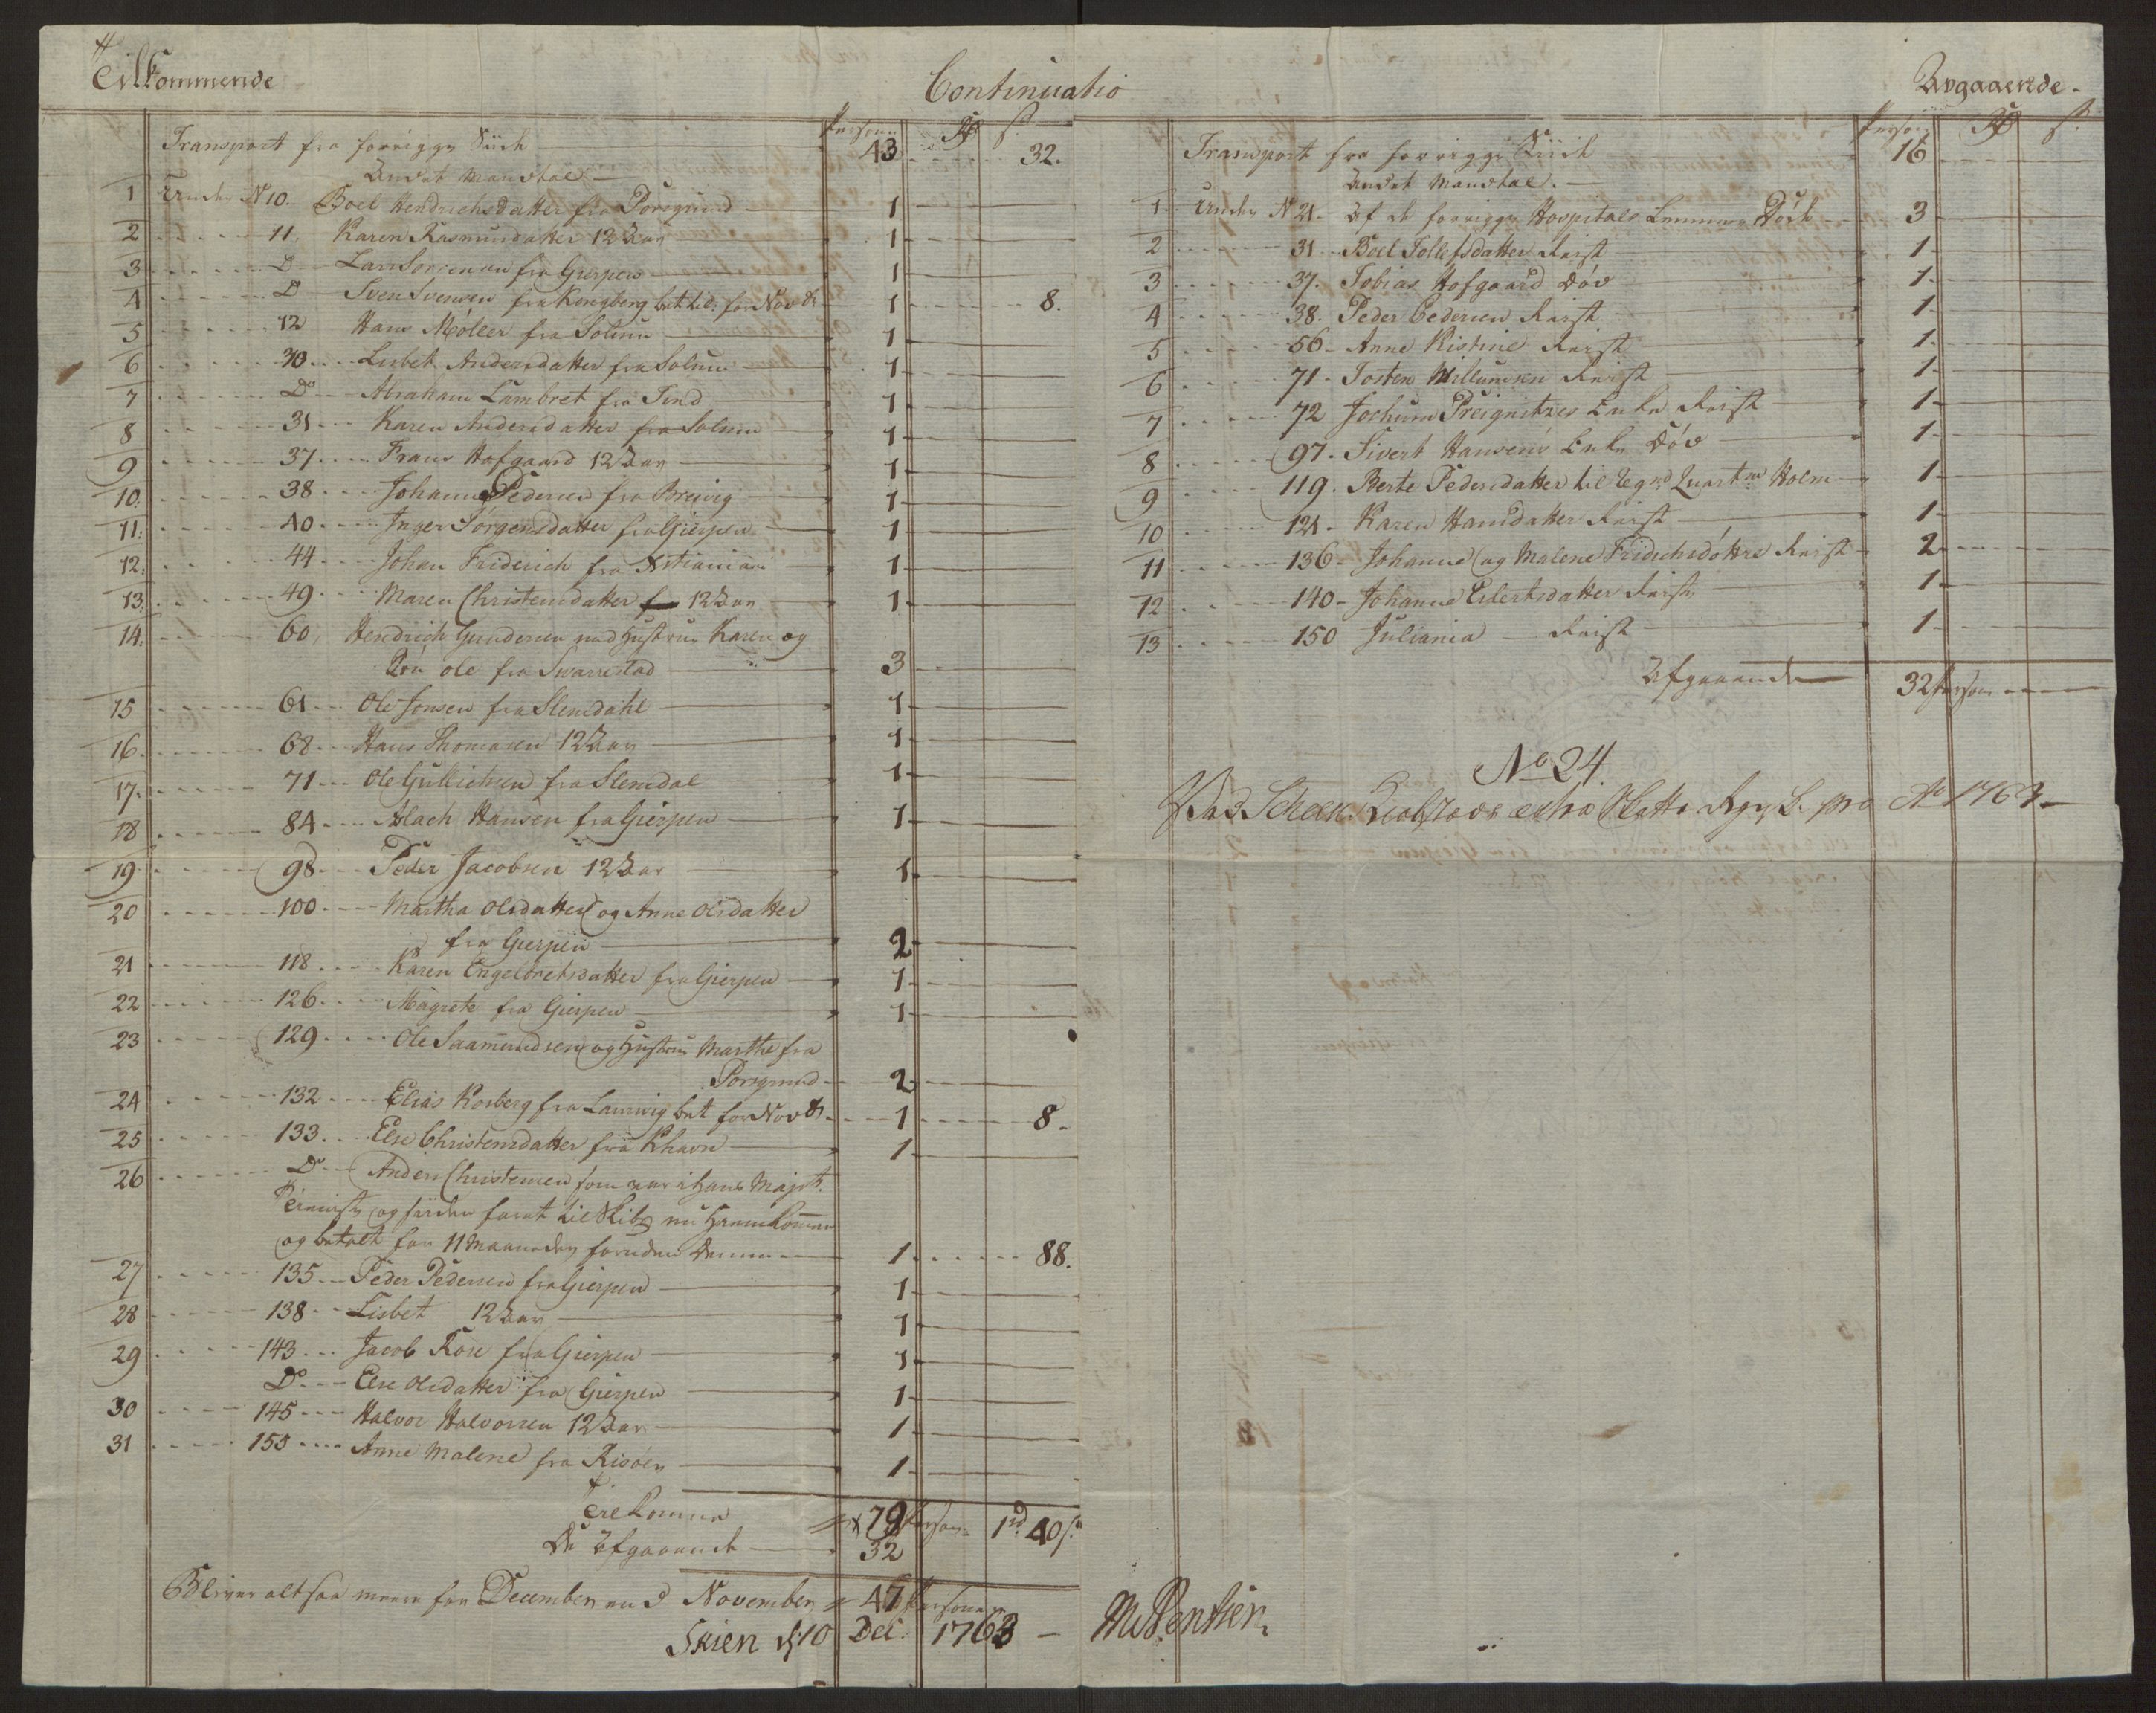 Tilkommende
Continuatio
Person Rd s.
Transport fra forrige Siide 43 32.
Andet Mandtal
1 Under N 10. Boel Hendrichsdatter fra Porsgrund 1
2 11. Karen Rasmusdatter 12 Aar 1
3 D Lars Sørensen fra Gierpen 1
4 D Sven Svensen fra Kongberg bet. tid. for Novbr 1 8.
5 12 Hans Møller fra Solum 1
6 30 Lisbet Andersdatter fra Solum 1
7 Do Abraham Lambret fra Tind 1
8 31 Karen Andersdatter fra Solum 1
9 37 Frans Hofgaard 12 Aar 1
10. 38 Johann Pedersen fra Brevig 1
11. 40 Inger Jørgensdatter fra Gierpen 1
12. 44 Johan Friderich fra Xstiania 1
13. 49 Maren Christensdatter 12 Aar 1
14. 60. Hendrich Gundersen med Hustrue Karen og
Søn Ole fra Swarrestad 3
15 61 Ole Jonsen fra Slemdahl 1
16. 68 Hans Thomasen 12 Aar 1
17. 71 Ole Gullichsen fra Slemdal 1
18 84 Aslach Hansen fra Gierpen 1
19 98 Peder Jacobsen 12 Aar 1
20 100 Martha Olsdatter og Anne Olsdatter
fra Gierpen 2
21 118 Karen Engelbretsdatter fra Gierpen 1
22 126 Magrete fra Gierpen 1
23 129 Ole Saamundsen og Hustrue Marthe fra
Porsgrund 2
24 132 Elias Rosberg fra Laurwig bet for Novbr 1 8.
25 133 Else Christensdatter fra Khavn 1
26 Do Anders Christensen som var i Hans Mayst.
Tieniste og siiden faret til Skibs nu Hiemkommen
og betalt for 11 Maaneder foruden Denne 1 88.
27 135 Peder Pedersen fra Gierpen 1
28 138 Lisbet 12 Aar 1
29 143 Jacob Rose fra Gierpen 1
Do Else Olsdatter fra Gierpen 1
30 145 Halvor Halvorsen 12 Aar 1
31 155 Anne Malene fra Risøer 1
Tilkommer 79 Person 1rd 40s.
De Afgaaende 32
Bliver altsaa meere for December end November 47 Personer
Skien d. 10 Dec. 1763 —
Avgaaende.
Person Rd s.
Transport fra forrige Siide 16
Andet Mandtal.
1 Under N 21. Af de forrige Hospitals Lemmer Døde 3
2 31 Boel Tollefsdatter Reist 1
3 37. Tobias Hofgaard Døv 1
4 38. Peder Pedersen Reist 1
5 56 Anne Kistine Reist 1
6 71 Josten Willumsen Reist 1
7 72 Jochum Preignitzes Enke Reist 1
8 97. Sivert Hansens Enke Døv 1
9 119. Berte Pedersdatter til Holm 1
10 121 Karen Hansdatter Reist 1
11 136 Johanne og Malene Fridichsdøttre Reist 2
12 140 Johanne Eilertsdatter Reist 1
13 150 Juliania Reist 1
Afgaaende 32 Person
No 24.
Ved Scheens Kiøbstæds extra Skatte Regnsk. pro Ao 1763